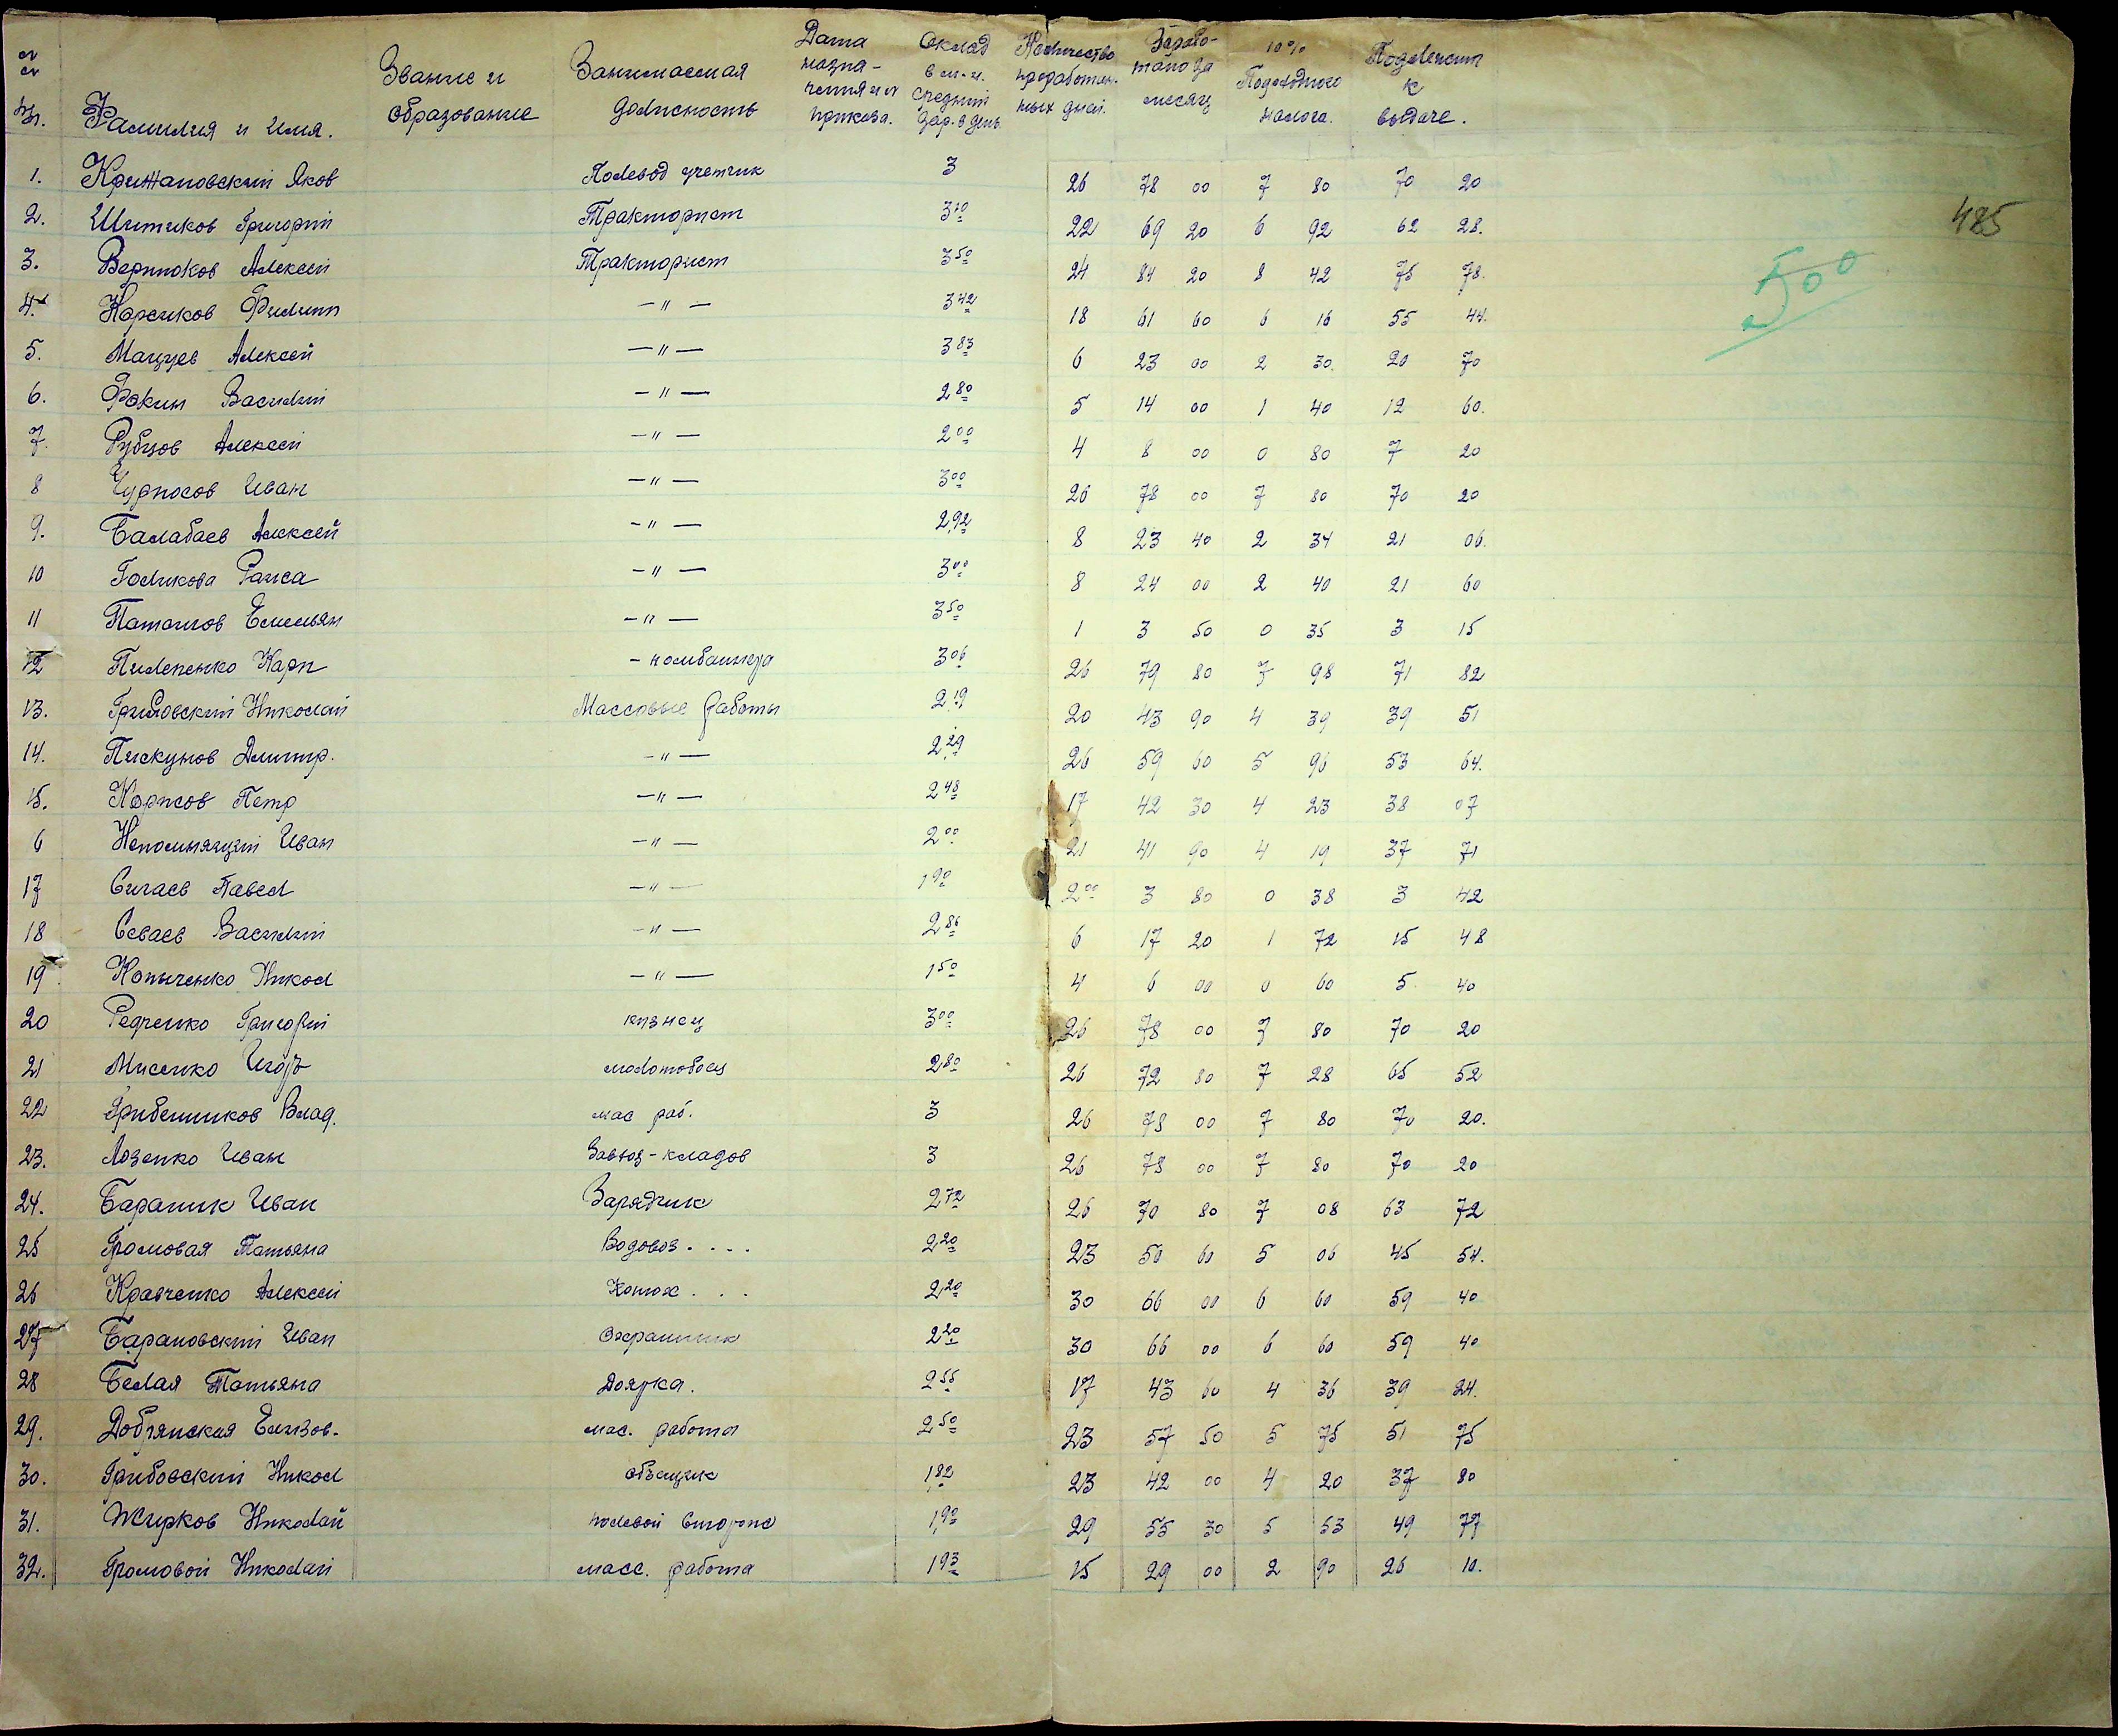 №№ п.п. Фамилия и имя. Звание и образование Занимаемая должность Дата назначения и № приказа. Оклад в м-ц. средний зар. в день Количество проработанных дней. Заработано за месяц 10% Подоходного налога. Подлежит к выдаче.
1. Крижановский Яков Полевод учетчик 3 26 78 00 7 80 70 20
2. Шитиков Григорий Тракторист 3 10 22 69 20 6 92 62 28.
485
3. Вериюков Алексей Тракторист 3 50 24 84 20 8 42 75 78.
500
4. Карсиков Филипп —"— 3 42 18 61 60 6 16 55 44.
5. Мацуев Алексей —"— 3 83 6 23 00 2 30. 20 70
6. Фокин Василий —"— 2 80 5 14 00 1 40 12 60.
7. Рубцов Алексей —"— 2 00 4 8 00 0 80 7 20
8 Чурносов Иван —"— 3 00 26 78 00 7 80 70 20
9. Балабаев Алексей —"— 2,92 8 23 40 2 34 21 06.
10 Голикова Раиса —"— 3 00 8 24 00 2 40 21 60
11 Паташов Емельян —"— 3 50 1 3 50 0 35 3 15
12 Пилепенко Карп - комбайнер 3 06 26 79 80 7 98 71 82
13. Николай Массовые работы 2,19 20 43 90 4 39 39 51
14. Пискунов Дмитр. —"— 2,29 26 59 60 5 96 53 64.
15. Карпсов Петр —"— 2 48 17 42 30 4 23 38 07
6 Непомнящий Иван —"— 2 00 21 41 90 4 19 37 71
17 Сигаев Павел —"— 1 90 2 00 3 80 0 38 3 42
18 Севаев Василий —"— 2 86 6 17 20 1 72 15 48
19 Копыченко Никол —"— 1 50 4 6 00 0 60 5 40
20 Редченко Григорий кузнец 3 00 26 78 00 7 80 70 20
21 Мисенко Игорь молотобоец 2,80 26 72 80 7 28 65 52
22 Грибенников Влад. мас раб. 3 26 78 00 7 80 70 20.
23. Лозенко Иван Завхоз - кладов 3 26 78 00 7 80 70 20
24. Бараник Иван Зарядчик 2 72 26 70 80 7 08 63 72
25 Громовая Татьяна Водовоз . . . . 2,20 23 50 60 5 06 45 54.
26 Кравченко Алексей Конюх . . . 2,20 30 66 00 6 60 59 40
27 Барановский Иван Охранник 2 20 30 66 00 6 60 59 40
28 Белая Татьяна Доярка. 2 56 17 43 60 4 36 39 24.
29. Добрянская Елизов. мас. работа 2 50 23 57 50 5 75 51 75
30. Грибовский Никол объещик 1,82 23 42 00 4 20 37 80
31. Жирков Николай полевой сторож 1,90 29 55 30 5 53 49 77
32. Громовой Николай масс. работа 1 93 15 29 00 2 90 26 10.